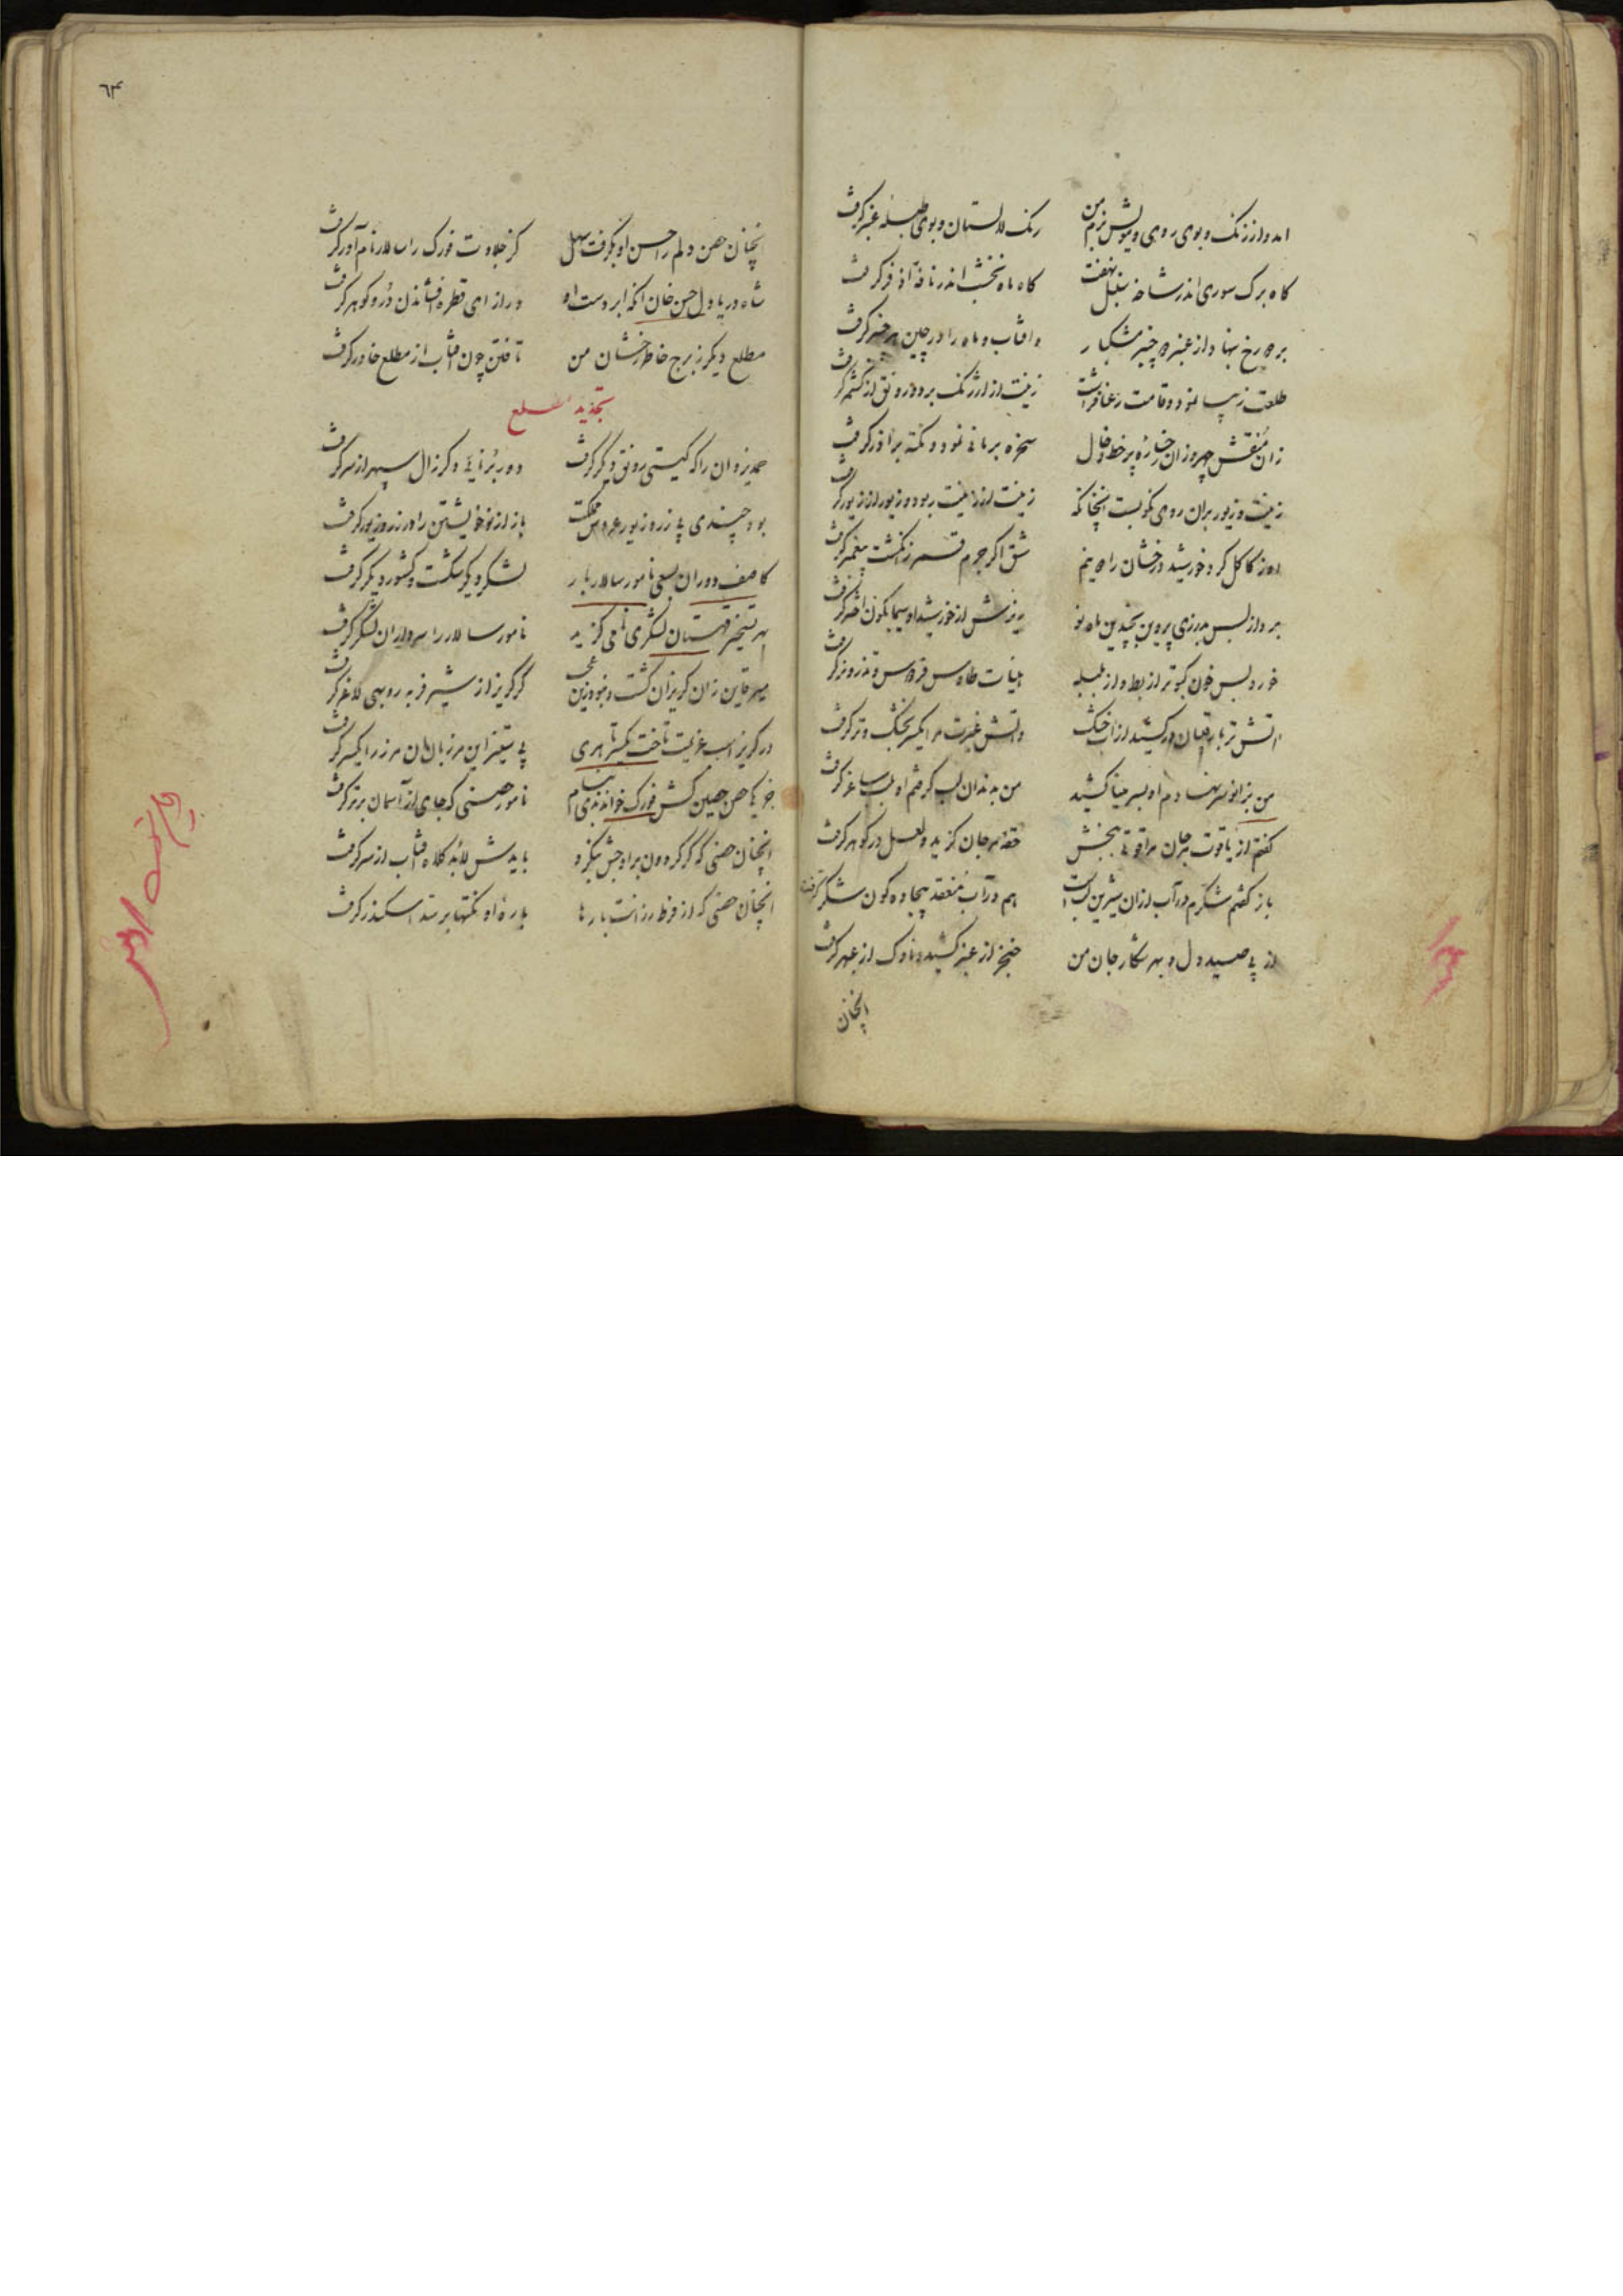 امد و از رنک و بوی روی و مویش بزم من رنک لالستان و بوی طبله عنبر گرفت
کاه برک سوری اندر شاخه سنبل نهفت کاه ماه نخشب اندر نافه اذفر کرفت
بر رخ نهاد از عنبر چنبر مشکبار وافتاب و ماه را در چین چنبر کرفت
طلعت زیبا نمود و قامت رعنا فراشت زینت از ارژنک برد و رونق از کشمر کرفت
زان منقش چهر و زان رخساره پر خط و خال سخره بر مانی نمود و نکته بر آذر کرفت
زینت و زیور بران روی نکو بست انچنانکه زینت از زینت ربود و زیور از زیور کرفت
از کاکل کرد خورشید درخشان را دو نیم شق اکر جرم قمر ز انکشت پیغمبر کرفت
ریزش از خورشید او سیمابکون اختر کرفت
خورد بس خون کبوتر از بط و از بلبله هیأت طاوس فردوس و تذرو نر کرفت
اتش تر با رقیبان درکشید از اب خشک واتش غیرت مرا یکسر بخشک و تر کرفت
من بزانو سر نهادم او بسر مینا کشید من بدندان لب کرفتم او بلب ساغر کرفت
کفتم از یاقوت مرجان مرا قوتی ببخش حقه مرجان کزید و لعل در کوهر کرفت
باز کفتم شکرم در آب ازان شیرین لب است هم در آب منعقد بیجاده کون شکر کرفت
از پی صید دل و بهر شکار جان من خنجر از عنبر کشید و ناوک از عبهر کرفت
انچنان
٦۴
انچنان حصن دلم را حسن او بکرفت سهل کز جلادت فورک را سالار نام آور کرفت
شاه دریا دل حسن خان انکه ابر دست او در ازای قطره افشاندن در و کوهر کرفت
مطلع دیکر ز برج خاطر رخشان من تافتن چون افتاب از مطلع خاور کرفت
تجدید مطلع
حمد یزدان را که کیتی رونق دیکر کرفت دور برنائی دکر زال سپهر از سر کرفت
بود چندی بی زر و زیور عروس مملکت باز از نو خویشتن را در زر و زیور کرفت
کاصف دوران بسعی نامور سالار بار لشکر دیکر شکست و کشور دیکر کرفت
بهر تسخیر قهستان لشکری نامی کزید نامور سالار را سردار ان لشکر کرفت
میر قاین زان کریزان کشت و نبود زین عجب کر کریز از شیر فربه روبهی لاغر کرفت
در کریز اسب عزیمت تاخت یکسر تا هری بی ستیز این مرزبان ان مرز را یکسر کرفت
جز یکی حصن حصین کش فورک خواندندی بنام نامور حصنی که جای از آسمان برتر کرفت
انچنان حصنی که کر کردون بر اوجش بنکرد بایدش لابد کلاه افتاب از سر کرفت
انچنان حصنی که از فرط رزانت بارها باره او نکتها بر سد اسکندر کرفت